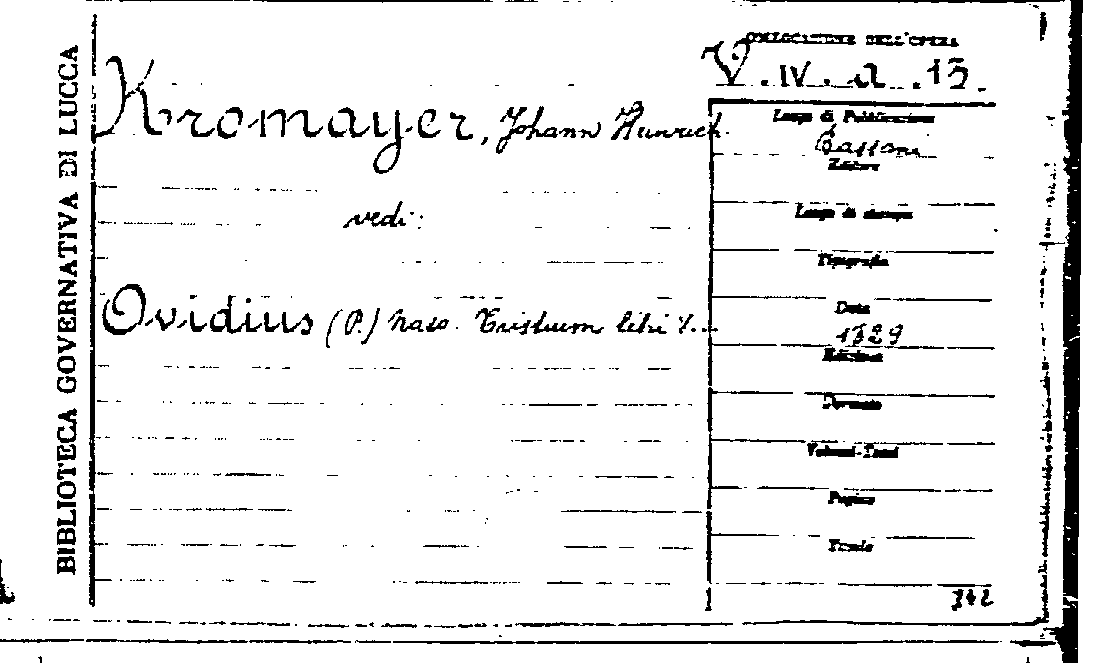 BIBLIOTECA GOVERNATIVA DI LUCCA
COLLOCAZIONE DELL'OPERA
V. IV. a. 13.
Kromayer, Johann Heinrich.
vedi:
Ovidius (P.) Naso. Tristium libri V...
Luogo di Pubblicazione
Bassani
Editore
Luogo di stampa
Tipografia
Data
Edizione
Formato
Volumi-Tomi
Pagine
Tavole
342